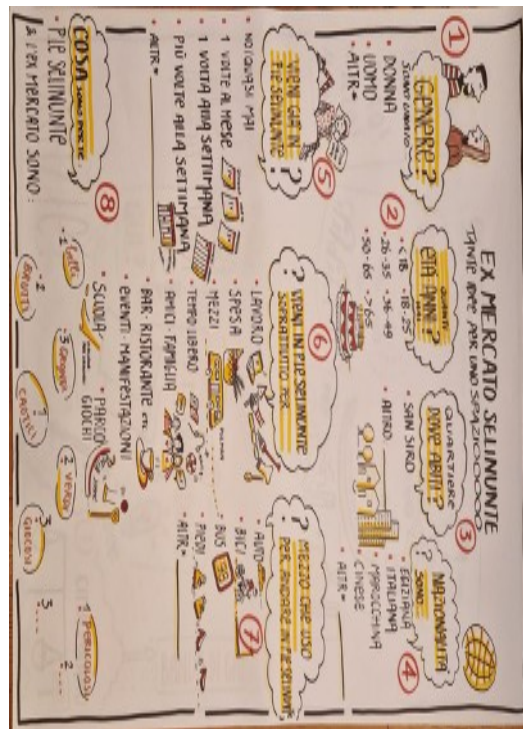 EX MERCATO SELINUNTE
TANTE IDEE PER UNO SPAZIOOOOO
1
GENERE?
DONNA
UOMO
ALTR*
2
QUANTI
ETÀ ANNI?
<18
18-25
26-35
36-49
50-65
>65
3
QUARTIERE
DOVE ABITI?
SAN SIRO
ALTRO
4
NAZIONALITÀ
SONO
?
EGIZIANA
ITALIANA
MAROCCHINA
CINESE
ALTR*
5
VIENI GIÀ IN
P.LE SELINUNTE
?
NO/QUASI MAI
1 VOLTE AL MESE
1 VOLTA ALLA SETTIMANA
PIÙ VOLTE ALLA SETTIMANA
ALTR*
6
?
VIENI IN P.LE SELINUNTE
SOPRATTUTTO PER
LAVORO
SPESA
MEZZI
TEMPO LIBERO
AMICI - FAMIGLIA
BAR, RISTORANTE etc
EVENTI - MANIFESTAZIONI
SCUOLA
PARCO
GIOCHI
7
?
MEZZO CHE USO
PER ANDARE IN P.LE SELINUNTE
AUTO
BICI
BUS
PIEDI
ALTR*
8
COSA
P.LE SELINUNTE
& L'EX MERCATO SONO:
1
2
3
1 CAOTICI
2 VERDI
3 GIOCOSI
1 PERICOLOSI
2
3